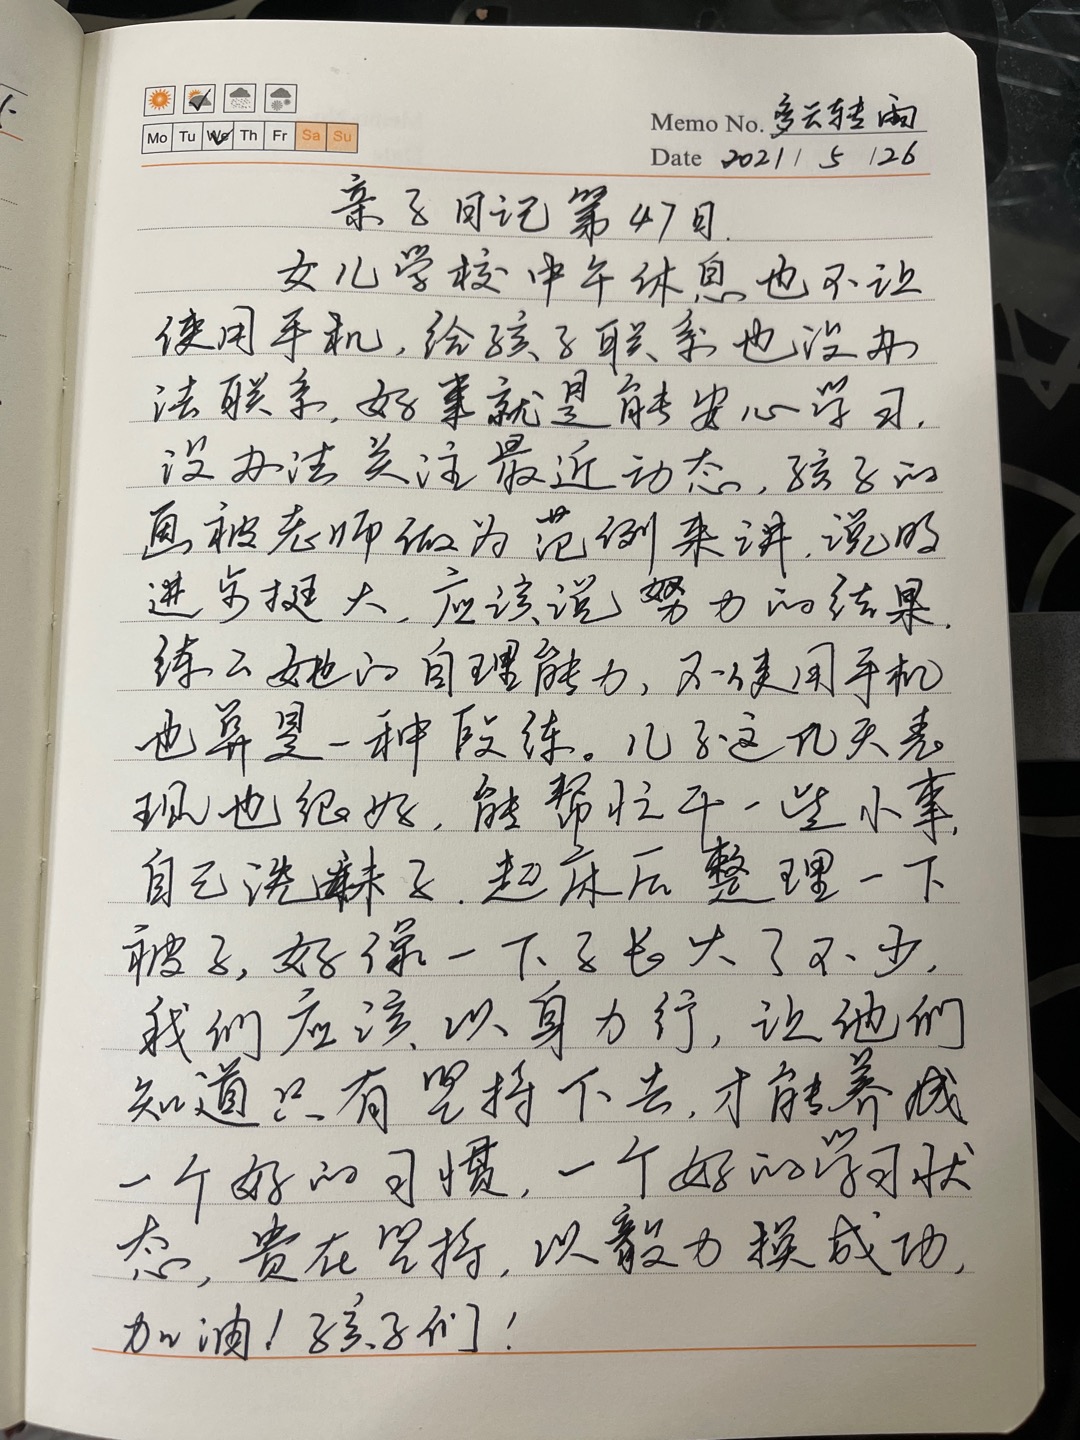 Mo Tu We Th Fr Sa Su
Memo No. 多云转雨
Date 2021 / 5 / 26
亲子日记第47日.
女儿学校中午休息也不让
使用手机,给孩子联系也没办
法联系,好事就是能安心学习,
没办法关注最近动态,孩子的
画被老师做为范例来讲,说明
进步挺大,应该说努力的结果.
练了她的自理能力,不使用手机
也算是一种段练。儿子这几天表
现也很好,能帮忙干一些小事,
自己洗袜子.起床后整理一下
被子,好像一下子长大了不少,
我们应该以身力行,让他们
知道只有坚持下去,才能养成
一个好的习惯,一个好的学习状
态,贵在坚持,以毅力换成功,
加油!孩子们!